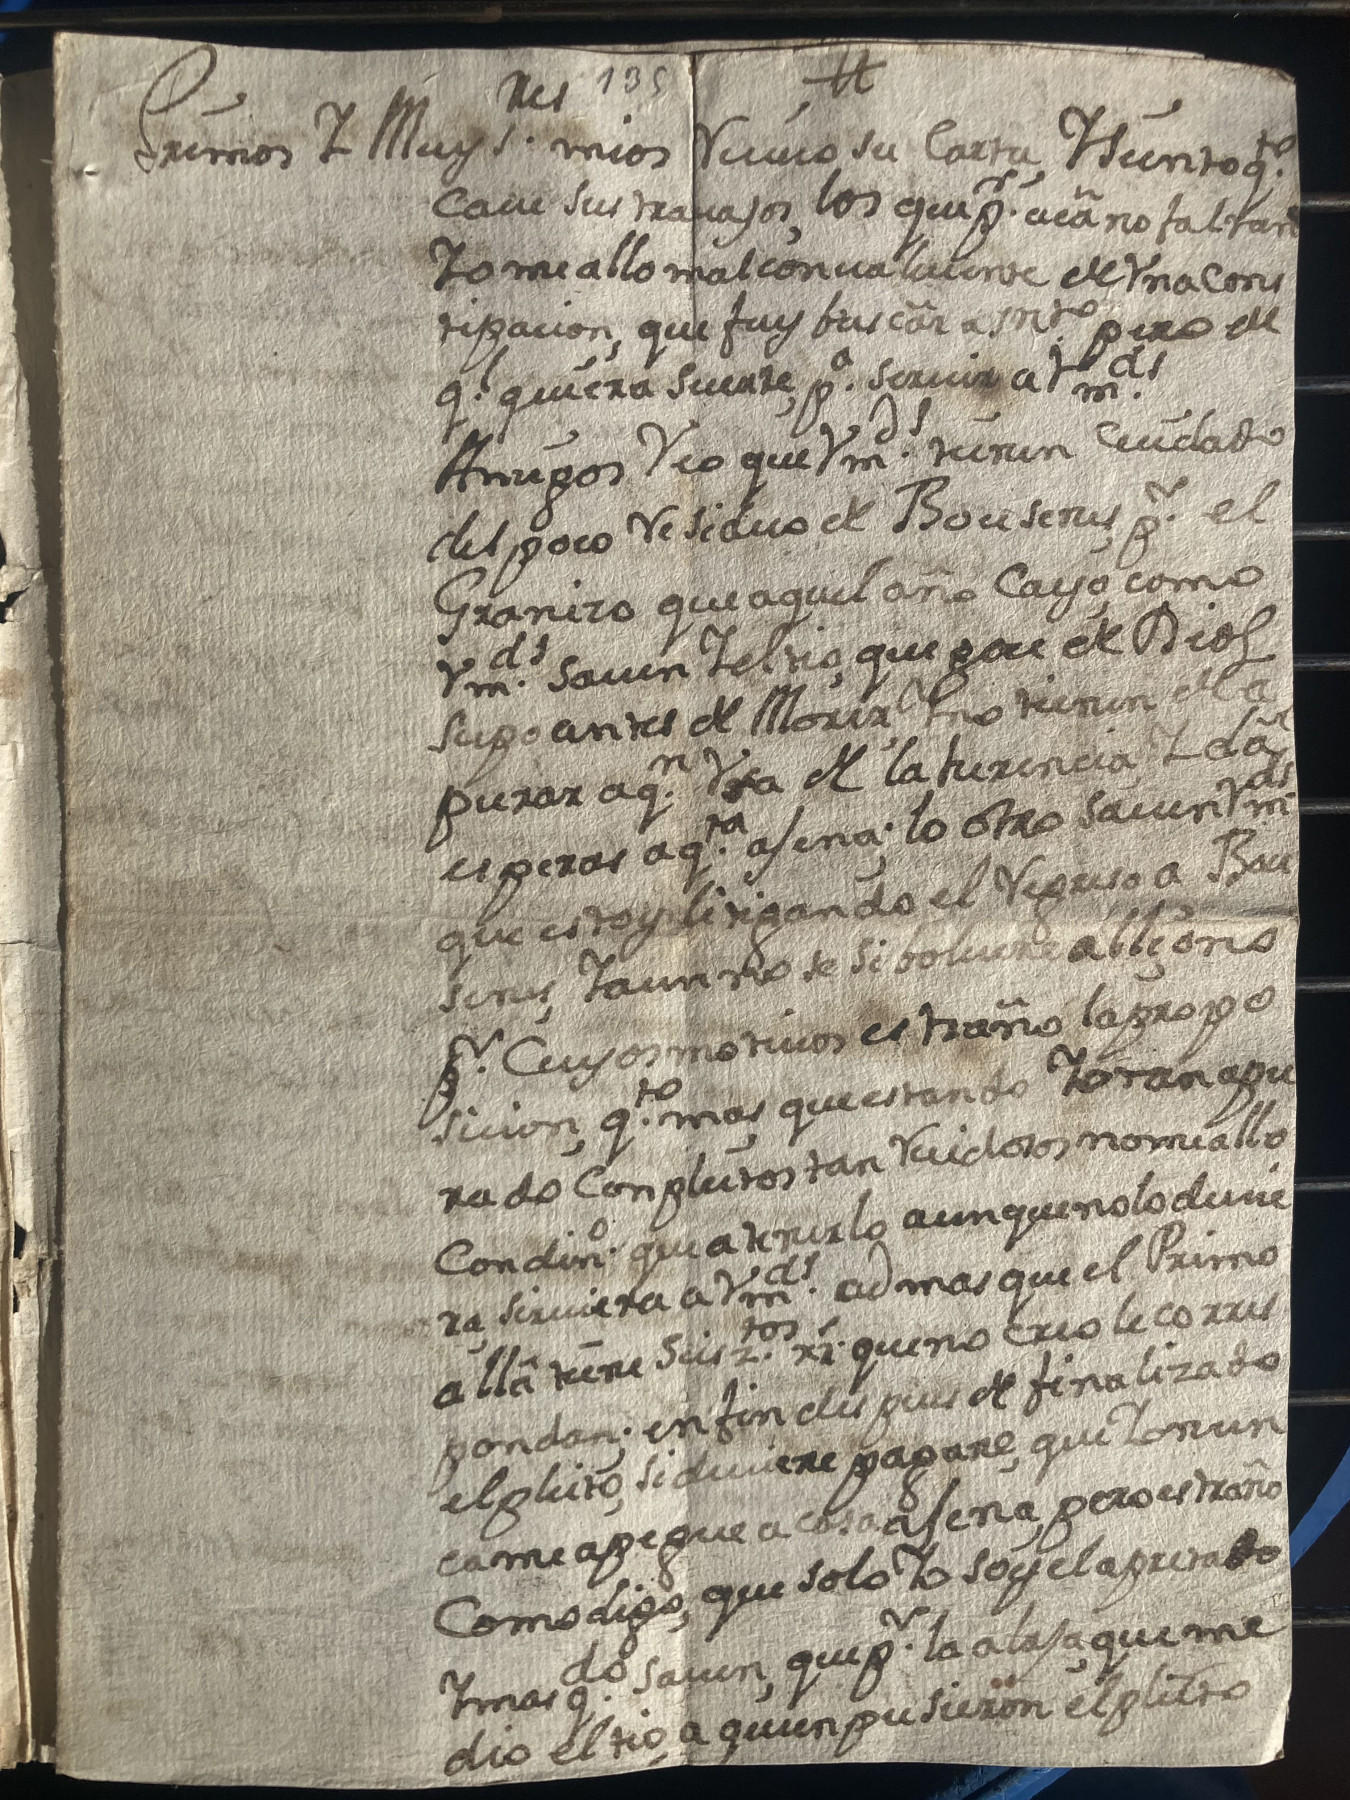 135 #
Primos Y Muy s.res mios Reciuo su Carta, Y siento q.to
caue sus trauajos, los que p.r acà no faltan
Yo me allo mal conualeciente de Vna Cons
tipacion, que fuy buscàr a Mto. pero de
q.l quiera suerte, p.a seruir a Vm.ds
Amigos Veo que Vm.ds tienen Cuidado
del poco Residuo de Boeserus, p.r el
Granizo que aquel año Cayò, como
Vm.ds sauen Y el tio, que goce de Dios
supo antes de Morir, Y no tienen de a
purar a q.n Vsa de la herencia, Y dàr
esperas a q.ta ajena; lo otro sauen Vm.ds
que estoy litigando el Regreso a Boe
serus, Y aun no se si boluere allì, o no
p.r Cuyos motiuos estraño la propo
sicion, q.to mas que estando Yo tan apu
rado Con pleitos tan Ruidosos no me allo
Con din.o que a tenerlo, aunque no lo deuie
ra, siruiera a Vm.ds ad mas que el Primo
allà tiene Seis z.tos rr. que no creo le corres
pondan; en fin despues de finalizado
el pleito, si deuiere pagare, que Yo nun
ca me apegue a cosa ajena, pero estraño
Como digo, que solo Yo soy el apretado
Y mas q.do sauen, que p.r la alaja, que me
dio el tio, a quien pusieron el pleito